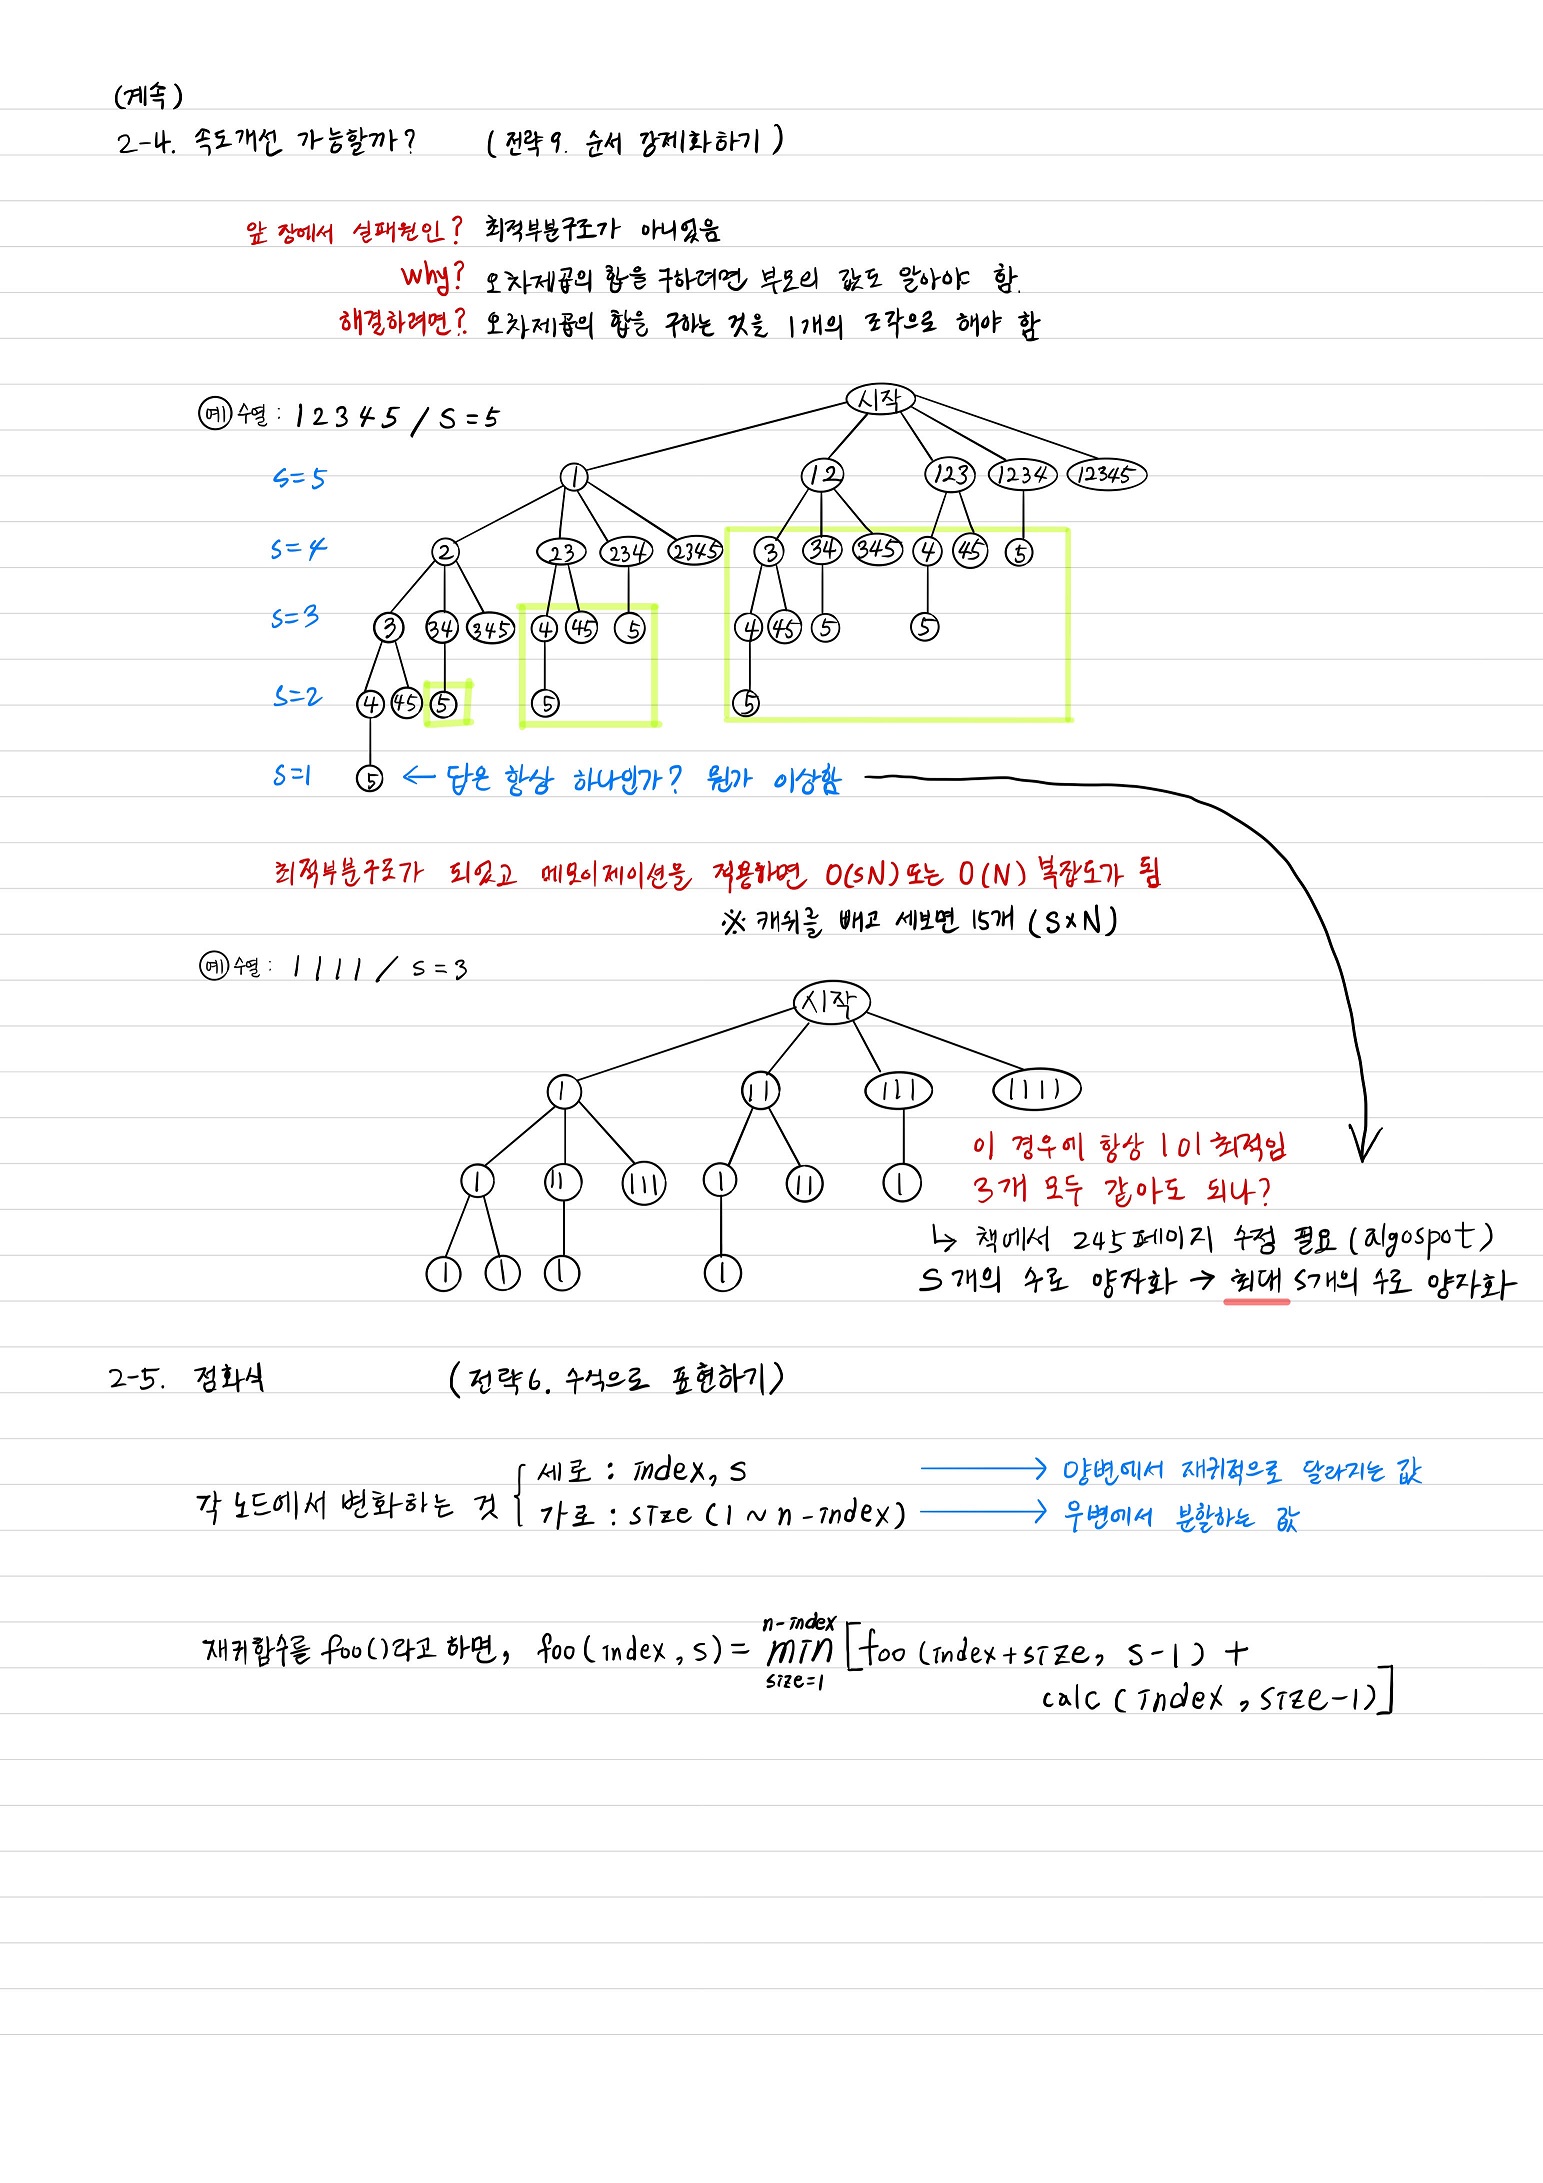 (계속)
2-4. 속도개선 가능할까? (전략9. 순서 강제화하기)
앞 장에서 실패원인? 최적부분구조가 아니었음
Why? 오차제곱의 합을 구하려면 부모의 값도 알아야 함.
해결하려면? 오차제곱의 합을 구하는 것을 1개의 조각으로 해야 함
시작
예 수열: 1 2 3 4 5 / S=5
S=5 1 12 123 1234 12345
S=4 2 23 234 2345 3 34 345 4 45 5
S=3 3 34 345 4 45 5 4 45 5 5
S=2 4 45 5 5 5
S=1 5 ← 답은 항상 하나인가? 뭔가 이상함
최적부분구조가 되었고 메모이제이션을 적용하면 O(SN) 또는 O(N) 복잡도가 됨
※ 캐쉬를 빼고 세보면 15개 (S×N)
예 수열: 1 1 1 1 / S=3
시작
1 11 111 1111
이 경우에 항상 1이 최적임
1 11 111 1 11 1
3개 모두 같아도 되나?
↳ 책에서 245페이지 수정 필요 (algospot)
1 1 1 1
S개의 수로 양자화 → 최대 S개의 수로 양자화
2-5. 점화식 (전략6. 수식으로 표현하기)
각 노드에서 변화하는 것
세로 : index, S → 양변에서 재귀적으로 달라지는 값
가로 : size (1 ~ n-index) → 우변에서 분할하는 값
재귀함수를 foo()라고 하면, foo(index, S) = min n-index size=1 [foo(index+size, S-1) +
calc(index, size-1)]